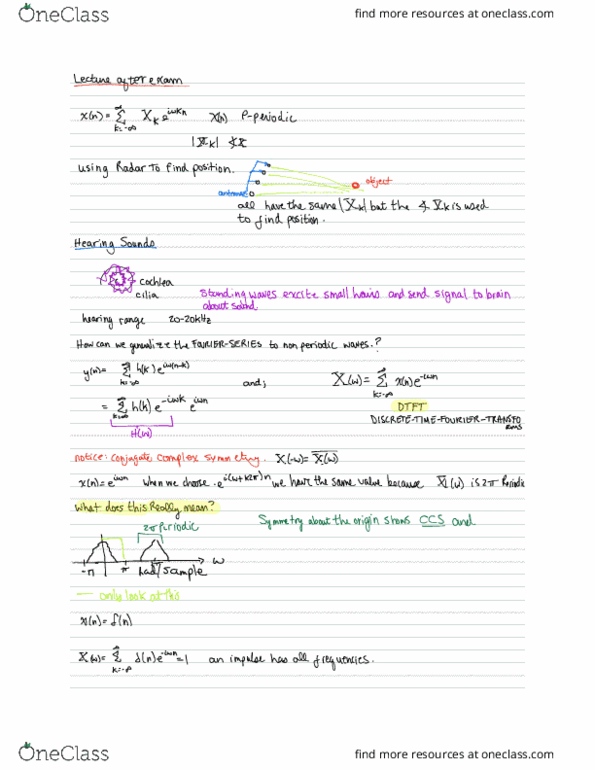 OneClass
find more resources at oneclass.com
Lecture after exam
x(n) = Σ k=-∞ ∞ X_k e^{iωkn} x(n) P-periodic
|X_k| ∡X
using Radar To find position.
object
antennae
all have the same |X_k| but the ∡X_k is used
to find position.
Hearing Sounds
cochlea
cilia
Standing waves excite small hairs and send signal to brain
about sound
hearing range 20-20kHz
How can we generalize the FOURIER-SERIES to non periodic waves.?
y(n) = Σ k=-∞ ∞ h(k) e^{iω(n-k)} and; X(ω) = Σ k=-∞ ∞ x(n) e^{-iωn}
= Σ k=-∞ ∞ h(k) e^{-iωk} e^{iωn} DTFT
H(ω) DISCRETE-TIME-FOURIER-TRANSFO
notice: conjugate complex symmetry. X(-ω) = \overline{X(ω)}
x(n) = e^{iωn} When we choose e^{i(ω+k2π)n} we have the same value because X(ω) is 2π Periodic
What does this Really mean?
2π Periodic
Symmetry about the origin shows CCS and
-π π rad/sample ω
— only look at this
x(n) = δ(n)
X(ω) = Σ k=-∞ ∞ δ(n) e^{-iωn} = 1 an impulse has all frequencies.
OneClass
find more resources at oneclass.com